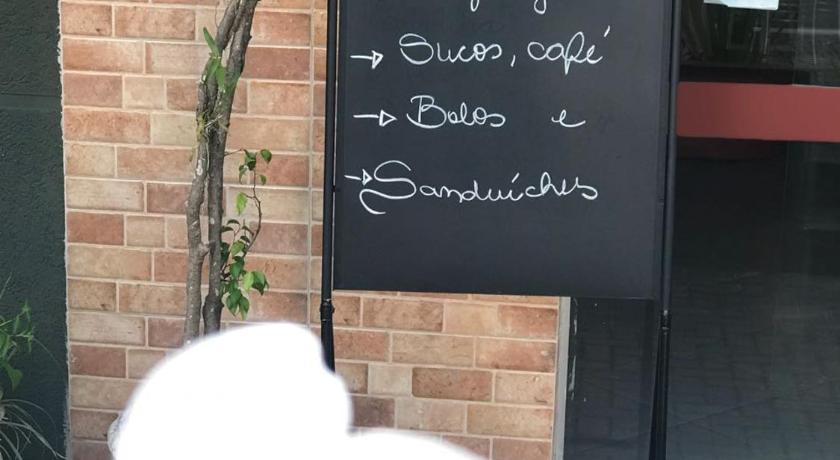 → Sucos, café
→ Bolos e
→ Sanduíches